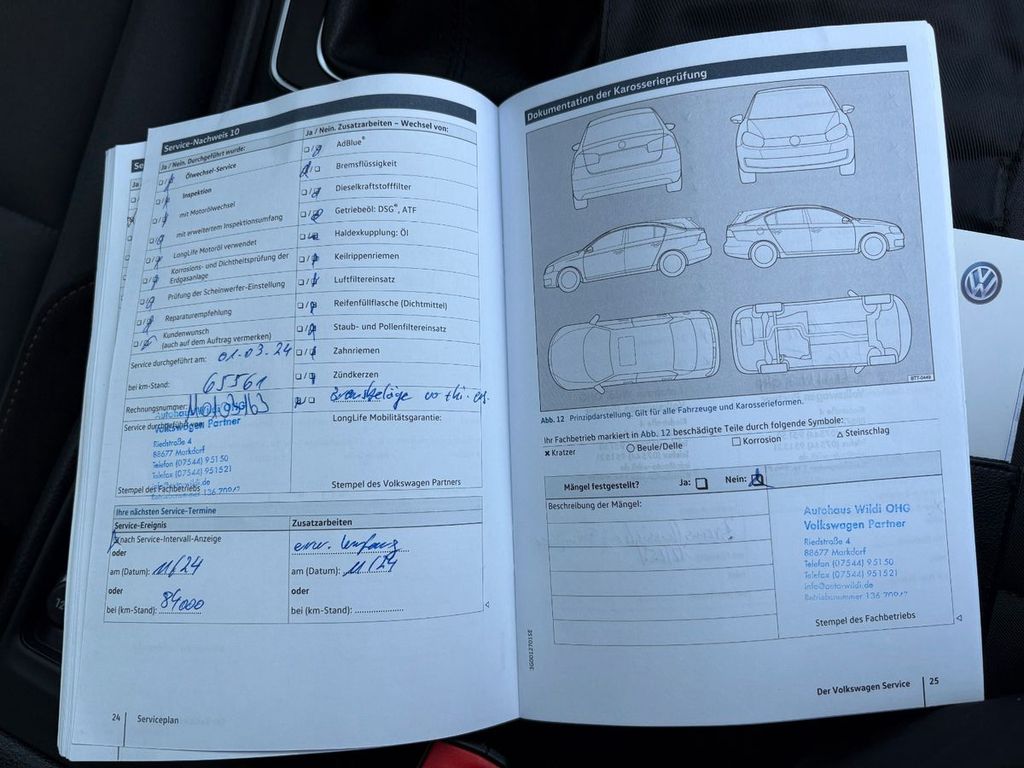 Service-Nachweis 10
Ja / Nein. Durchgeführt wurde:
Ölwechsel-Service
Inspektion
mit Motorölwechsel
mit erweitertem Inspektionsumfang
LongLife Motoröl verwendet
Korrosions- und Dichtheitsprüfung der
Erdgasanlage
Prüfung der Scheinwerfer-Einstellung
Reparaturempfehlung
Kundenwunsch
(auch auf dem Auftrag vermerken)
Service durchgeführt am: 01.03.24
bei km-Stand: 65561
Rechnungsnummer:
Service durchgeführt von:
Autohaus Wildi OHG
Volkswagen Partner
Riedstraße 4
88677 Markdorf
Telefon (07544) 95150
Telefax (07544) 951521
info@autowildi.de
Betriebsnummer
Stempel des Fachbetriebs
Ja / Nein. Zusatzarbeiten – Wechsel von:
AdBlue®
Bremsflüssigkeit
Dieselkraftstofffilter
Getriebeöl: DSG®, ATF
Haldexkupplung: Öl
Keilrippenriemen
Luftfiltereinsatz
Reifenfüllflasche (Dichtmittel)
Staub- und Pollenfiltereinsatz
Zahnriemen
Zündkerzen
Bremsbeläge vo + hi
LongLife Mobilitätsgarantie:
Stempel des Volkswagen Partners
Ihre nächsten Service-Termine
Service-Ereignis
nach Service-Intervall-Anzeige
oder
am (Datum): 11/24
oder
bei (km-Stand): 84000
Zusatzarbeiten
erw. Umfang
am (Datum): 11/24
oder
bei (km-Stand):
24 Serviceplan
Dokumentation der Karosserieprüfung
BTT-0449
Abb. 12 Prinzipdarstellung. Gilt für alle Fahrzeuge und Karosserieformen.
Ihr Fachbetrieb markiert in Abb. 12 beschädigte Teile durch folgende Symbole:
× Kratzer ○ Beule/Delle □ Korrosion △ Steinschlag
Mängel festgestellt? Ja: Nein:
Beschreibung der Mängel:
Autohaus Wildi OHG
Volkswagen Partner
Riedstraße 4
88677 Markdorf
Telefon (07544) 95150
Telefax (07544) 951521
info@autowildi.de
Betriebsnummer
Stempel des Fachbetriebs
3G0012701SE
Der Volkswagen Service 25